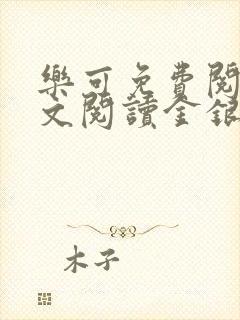 樂可免費閱
文閱讀金銀
木子